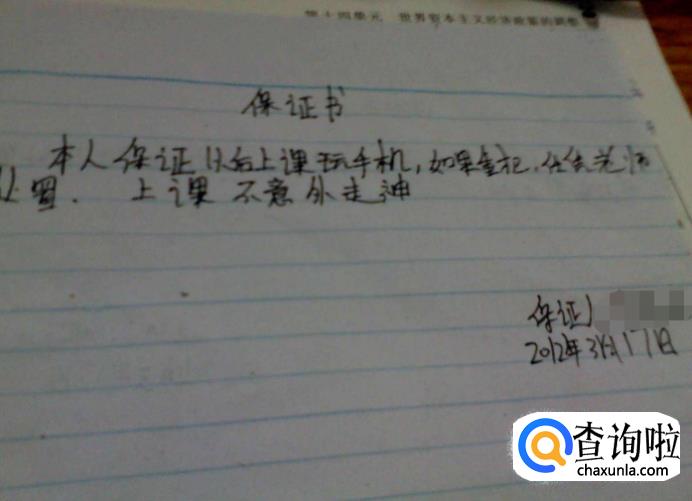 第十四单元 世界资本主义经济政策的调整
保证书
本人保证以后上课玩手机,如果重犯,任凭老师
处置. 上课不意外走神
保证人
2012年3月17日
查询啦
chaxunla.com